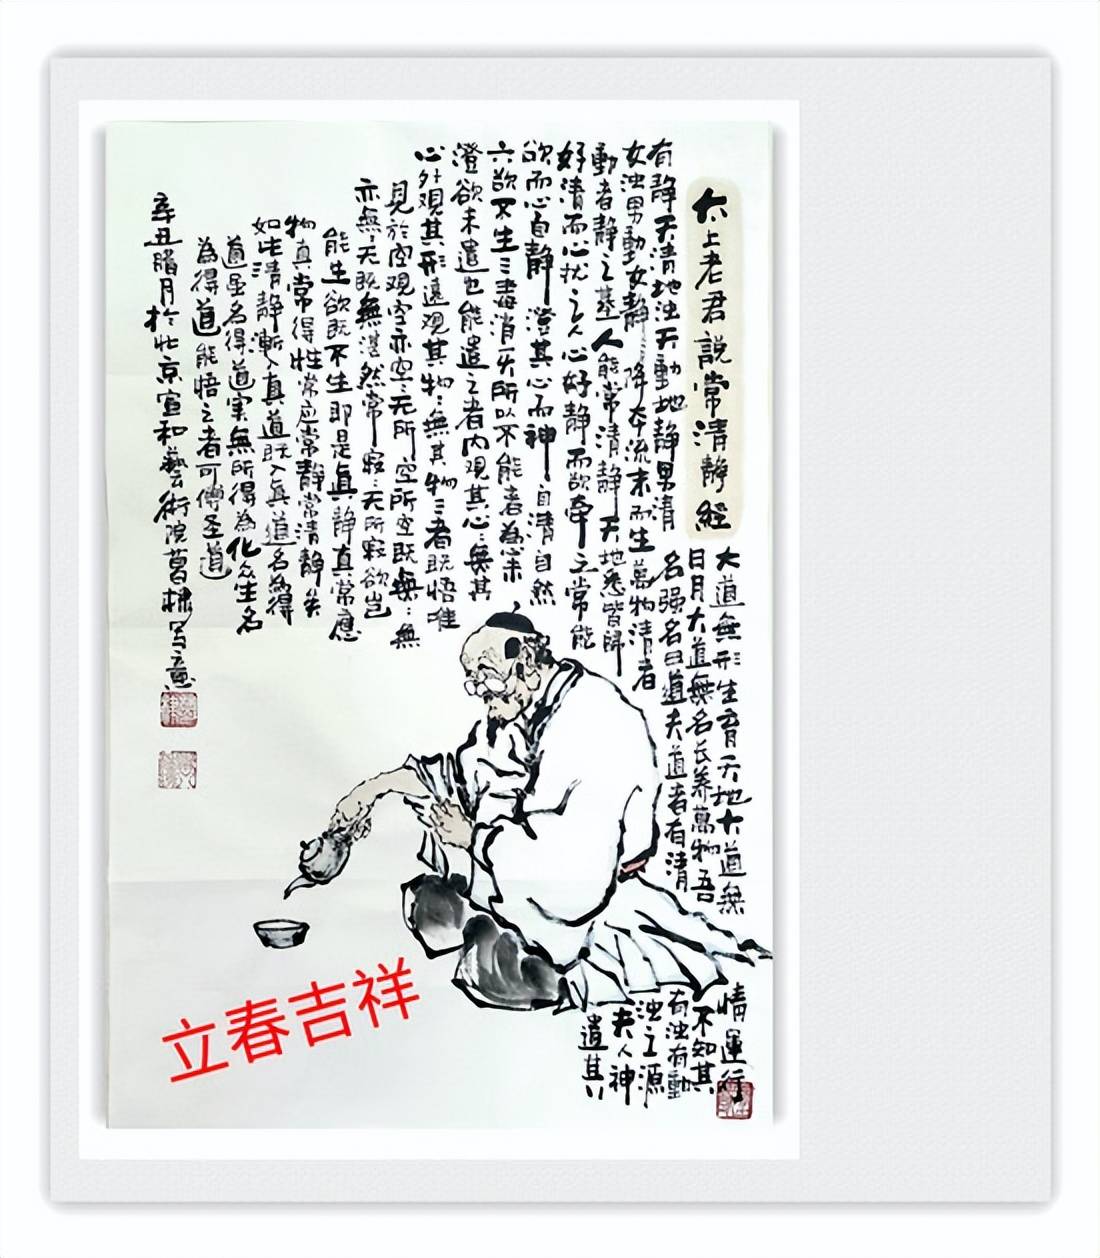 太上老君說常清靜經
大道無形生育天地大道無
情運行
日月大道無名长养萬物吾
不知其
名强名曰道夫道者有清
有浊有動
有静天清地浊天動地静男清
女浊男動女静〻降本流末而生萬物清者
浊之源
動者静之基人能常清静天地悉皆歸
夫人神
好清而心扰之人心好静而欲牵之常能
遣其
欲而心自静澄其心而神自清自然
六欲不生三毒消灭所以不能者為心未
澄欲未遣也能遣之者内观其心〻無其
心外观其形遠观其物〻無其物三者既悟唯
見於空观空亦空〻无所空所空既無〻無
亦無〻无既無湛然常寂〻无所寂欲岂
能生欲既不生即是真静真常應
物真常得性常应常静常清静矣
如此清静漸入真道既入真道名為得
道虽名得道实無所得為化众生名
為得道能悟之者可傳圣道
辛丑腊月於北京宣和藝術院葛棣写意
立春吉祥